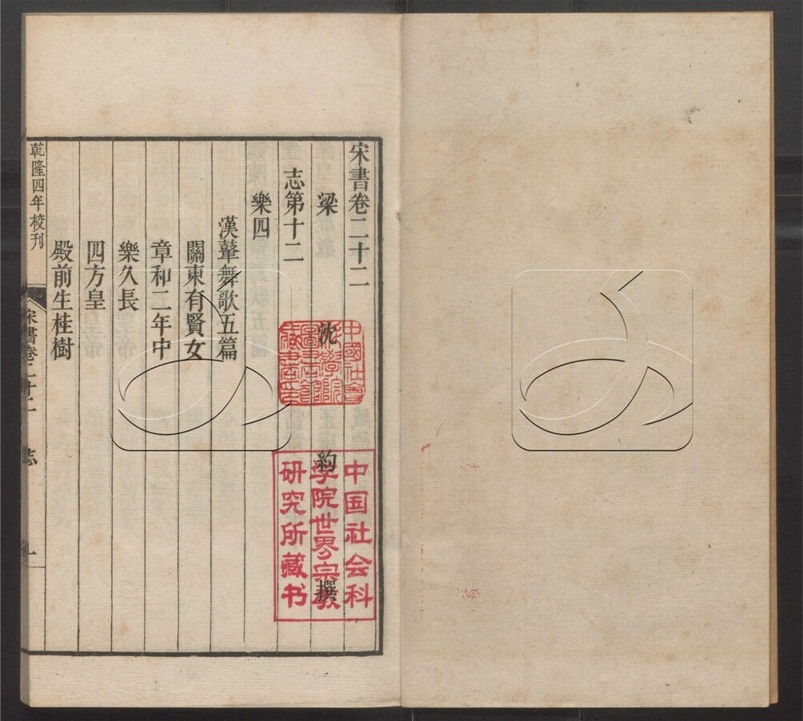 宋書卷二十二
梁 沈 約 撰
志第十二
樂四
漢鼙舞歌五篇
關東有賢女
章和二年中
樂久長
四方皇
殿前生桂樹
乾隆四年校刊
宋書卷二十二 志 一
中国社会科
学院世界宗教
研究所藏书